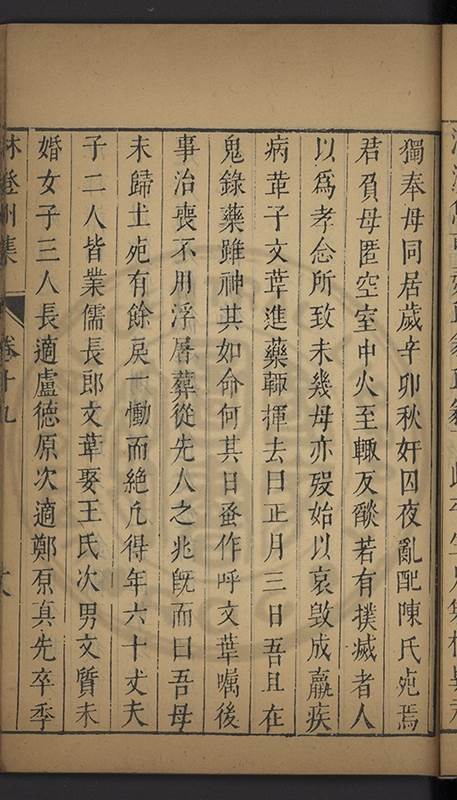 獨奉母同居歲辛卯秋奸囚夜亂配陳氏死焉
君負母匿空室中火至輙反燄若有撲滅者人
以爲孝念所致未幾母亦殁始以哀毀成羸疾
病葷子文葷進藥輙揮去曰正月三日吾且在
鬼錄藥雖神其如命何其日蚤作呼文葷囑後
事治喪不用浮屠葬從先人之兆旣而曰吾母
未歸土死有餘戾一慟而絕凢得年六十丈夫
子二人皆業儒長郎文葷娶王氏次男文質未
婚女子三人長適盧德原次適鄭原真先卒季
林登州集 卷十九